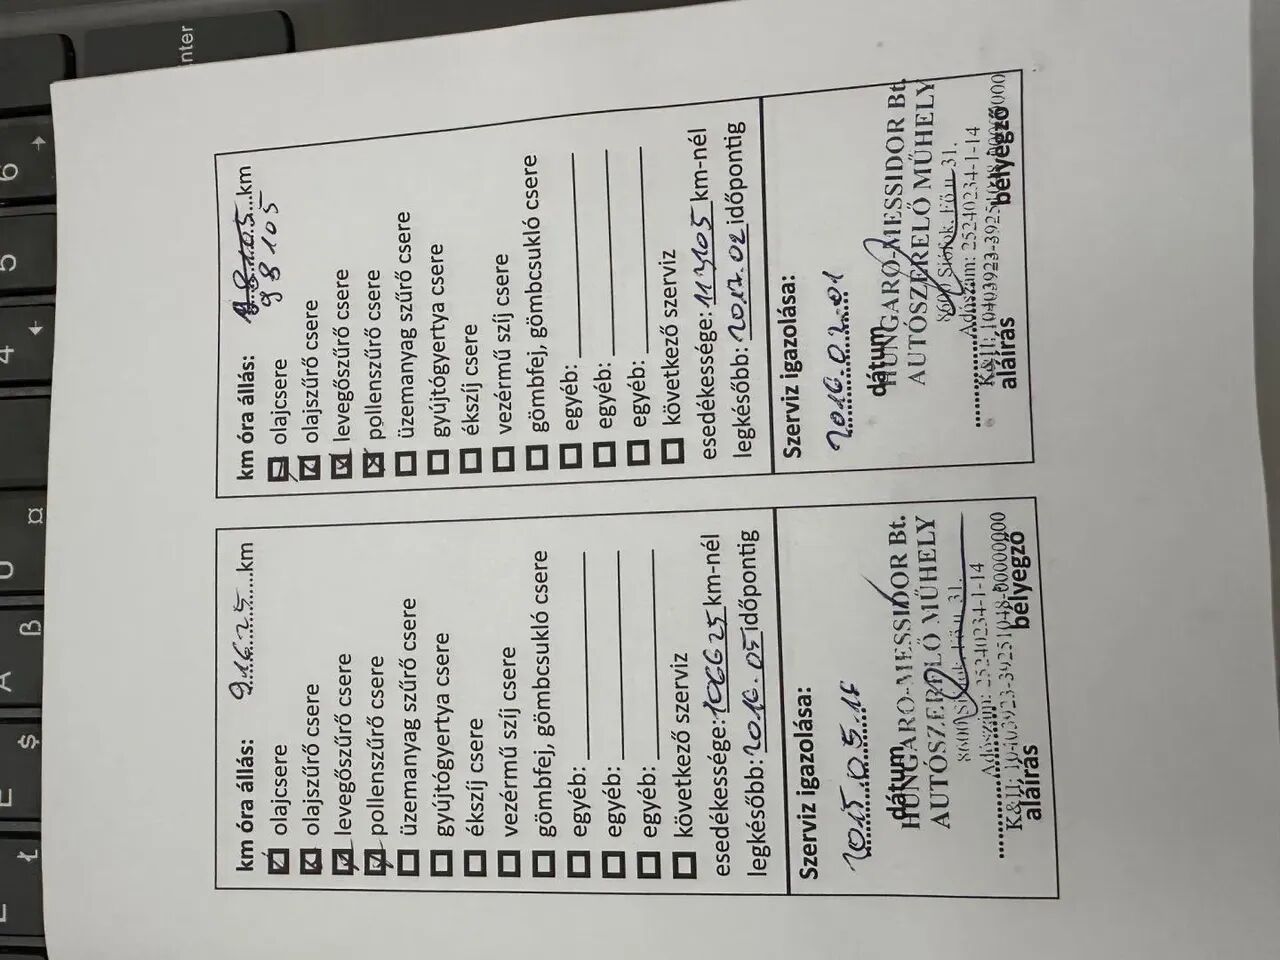 km óra állás: 91625 km
olajcsere
olajszűrő csere
levegőszűrő csere
pollenszűrő csere
üzemanyag szűrő csere
gyújtógyertya csere
ékszíj csere
vezérmű szíj csere
gömbfej, gömbcsukló csere
egyéb:
egyéb:
egyéb:
következő szerviz
esedékessége: 106625 km-nél
legkésőbb: 2016.05 időpontig
Szerviz igazolása:
2015.05.
dátum
HUNGARO-MESSIDOR Bt.
AUTÓSZERELŐ MŰHELY
8600 Siófok, Fő u 31.
Adószám: 25240234-1-14
K&H: 10403923-39251048-00000000
aláírás bélyegző
km óra állás: 98105 km
98105
olajcsere
olajszűrő csere
levegőszűrő csere
pollenszűrő csere
üzemanyag szűrő csere
gyújtógyertya csere
ékszíj csere
vezérmű szíj csere
gömbfej, gömbcsukló csere
egyéb:
egyéb:
egyéb:
következő szerviz
esedékessége: 113105 km-nél
legkésőbb: 2017.02 időpontig
Szerviz igazolása:
2016.02.01
dátum
HUNGARO-MESSIDOR Bt.
AUTÓSZERELŐ MŰHELY
8600 Siófok, Fő u 31.
Adószám: 25240234-1-14
K&H: 10403923-39251048-00000000
aláírás bélyegző
nter
6
5
4
¤
ß
A
$
E
Ł